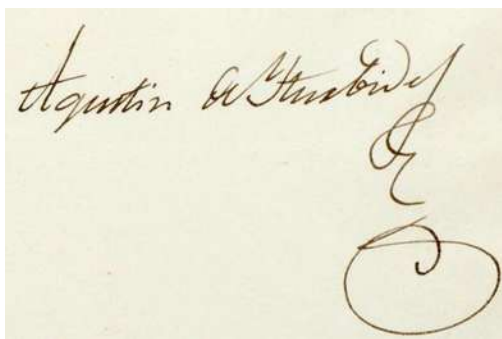 Agustin de Iturbide